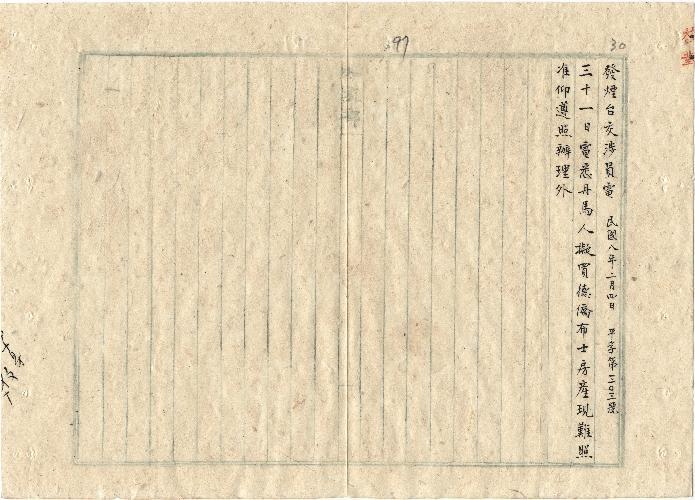 發煙台交涉員電 民國八年二月四日 平字第三〇三號
三十一日電悉丹馬人擬買德僑布士房產現難照
准仰遵照辦理外
30
97